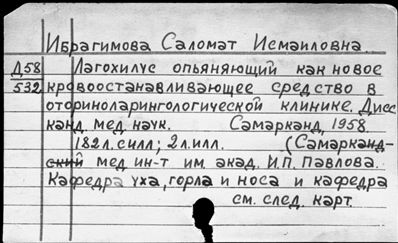 Ибрагимова Саломат Исмаиловна
Д58 Лагохилус опьяняющий как новое
532 кровоостанавливающее средство в
оториноларингологической клинике. Дисс
канд. мед. наук. Самарканд, 1958
182л. с илл; 2л. илл. (Самарканд-
ский мед. ин-т им. акад. И.П. Павлова.
Кафедра уха, горла и носа и кафедра
см. след. карт.